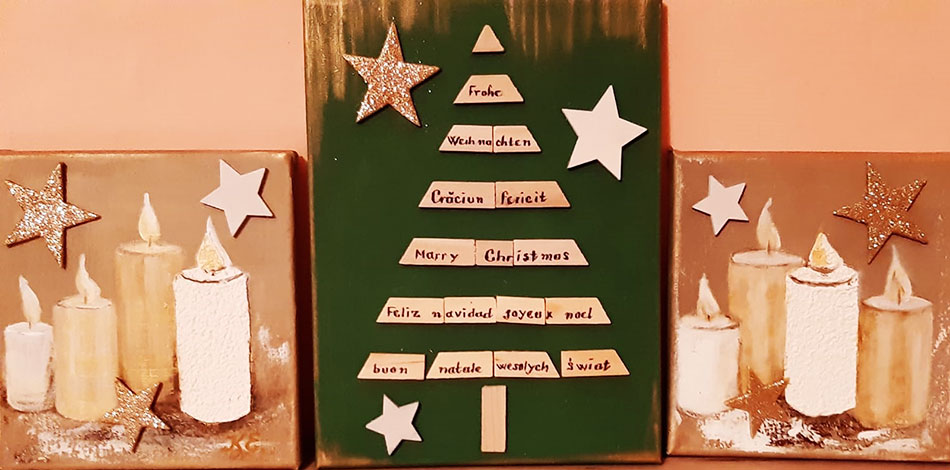 Frohe
Weihnachten
Crăciun fericit
Marry Christmas
Feliz navidad joyeux noel
buon natale wesołych świąt
KG